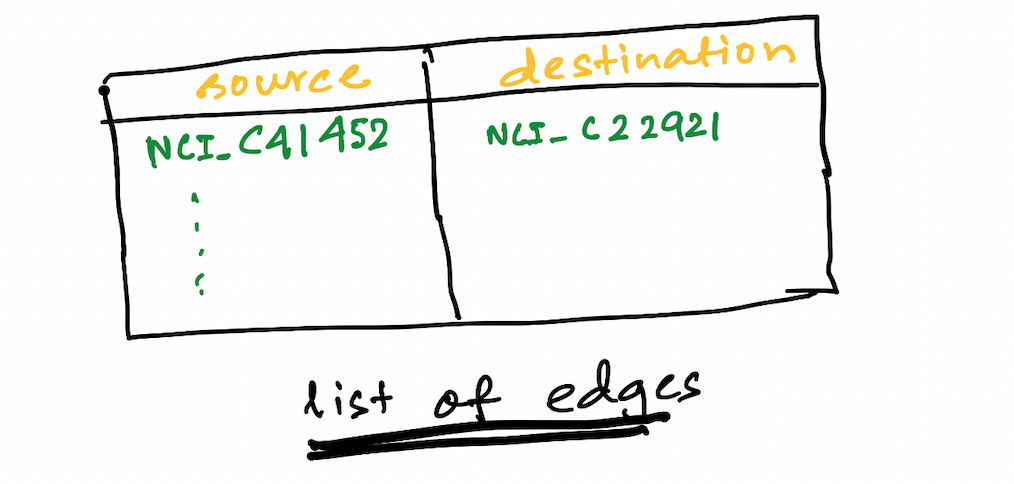 source destination
NCI_C41452 NCI_C22921
list of edges